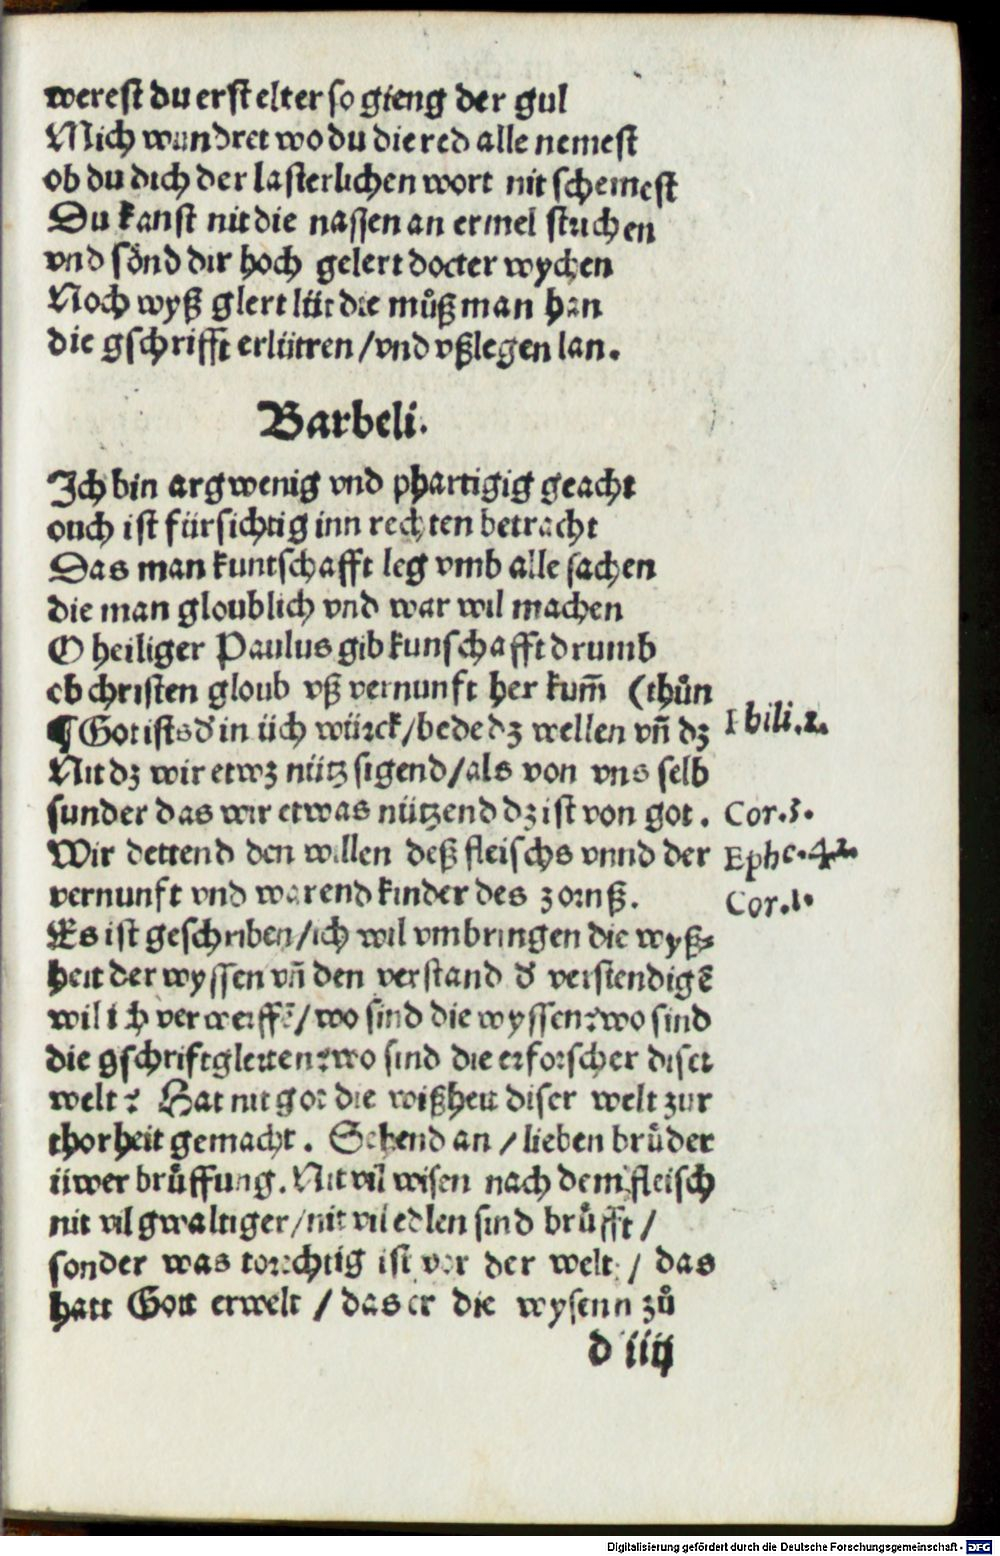 werest du erst elter so gieng der gul
Mich wundret wo du die red alle nemest
ob du dich der lasterlichen wort nit schemest
Du kanst nit die nassen an ermel strichen
vnd sönd dir hoch gelert docter wychen
Noch wyß glert lüt die můß man han
die gschrifft erlütren / vnd vßlegen lan.
Barbeli.
Ich bin argwenig vnd phartigig geacht
ouch ist fürsichtig inn rechten betracht
Das man kuntschafft leg vmb alle sachen
die man gloublich vnd war wil machen
O heiliger Paulus gib kunschafft drumb
ob christen gloub vß vernunft her kum̄ (thůn
¶ Got ists d' in üch würck / bede dz wellen vn̄ dz
Phili. 2.
Nit dz wir etwz nütz sigend / als von vns selb
sunder das wir etwas nützend dz ist von got.
Cor. 3.
Wir dettend den willen deß fleischs vnnd der
Ephe. 4 2.
vernunft vnd warend kinder des zornß.
Cor. 1.
Es ist geschriben / ich wil vmbringen die wyß⸗
heit der wyssen vn̄ den verstand d' verstendigē
wil ich verwerffē / wo sind die wyssen? wo sind
die gschriftglerten? wo sind die erforscher diser
welt? Hat nit got die wißheit diser welt zur
thorheit gemacht. Sehend an / lieben brůder
üwer brůffung. Nit vil wisen nach dem fleisch
nit vil gwaltiger / nit vil edlen sind brůfft /
sonder was torechtig ist vor der welt / das
hatt Gott erwelt / das er die wysenn zů
d iiij
Digitalisierung gefördert durch die Deutsche Forschungsgemeinschaft - DFG